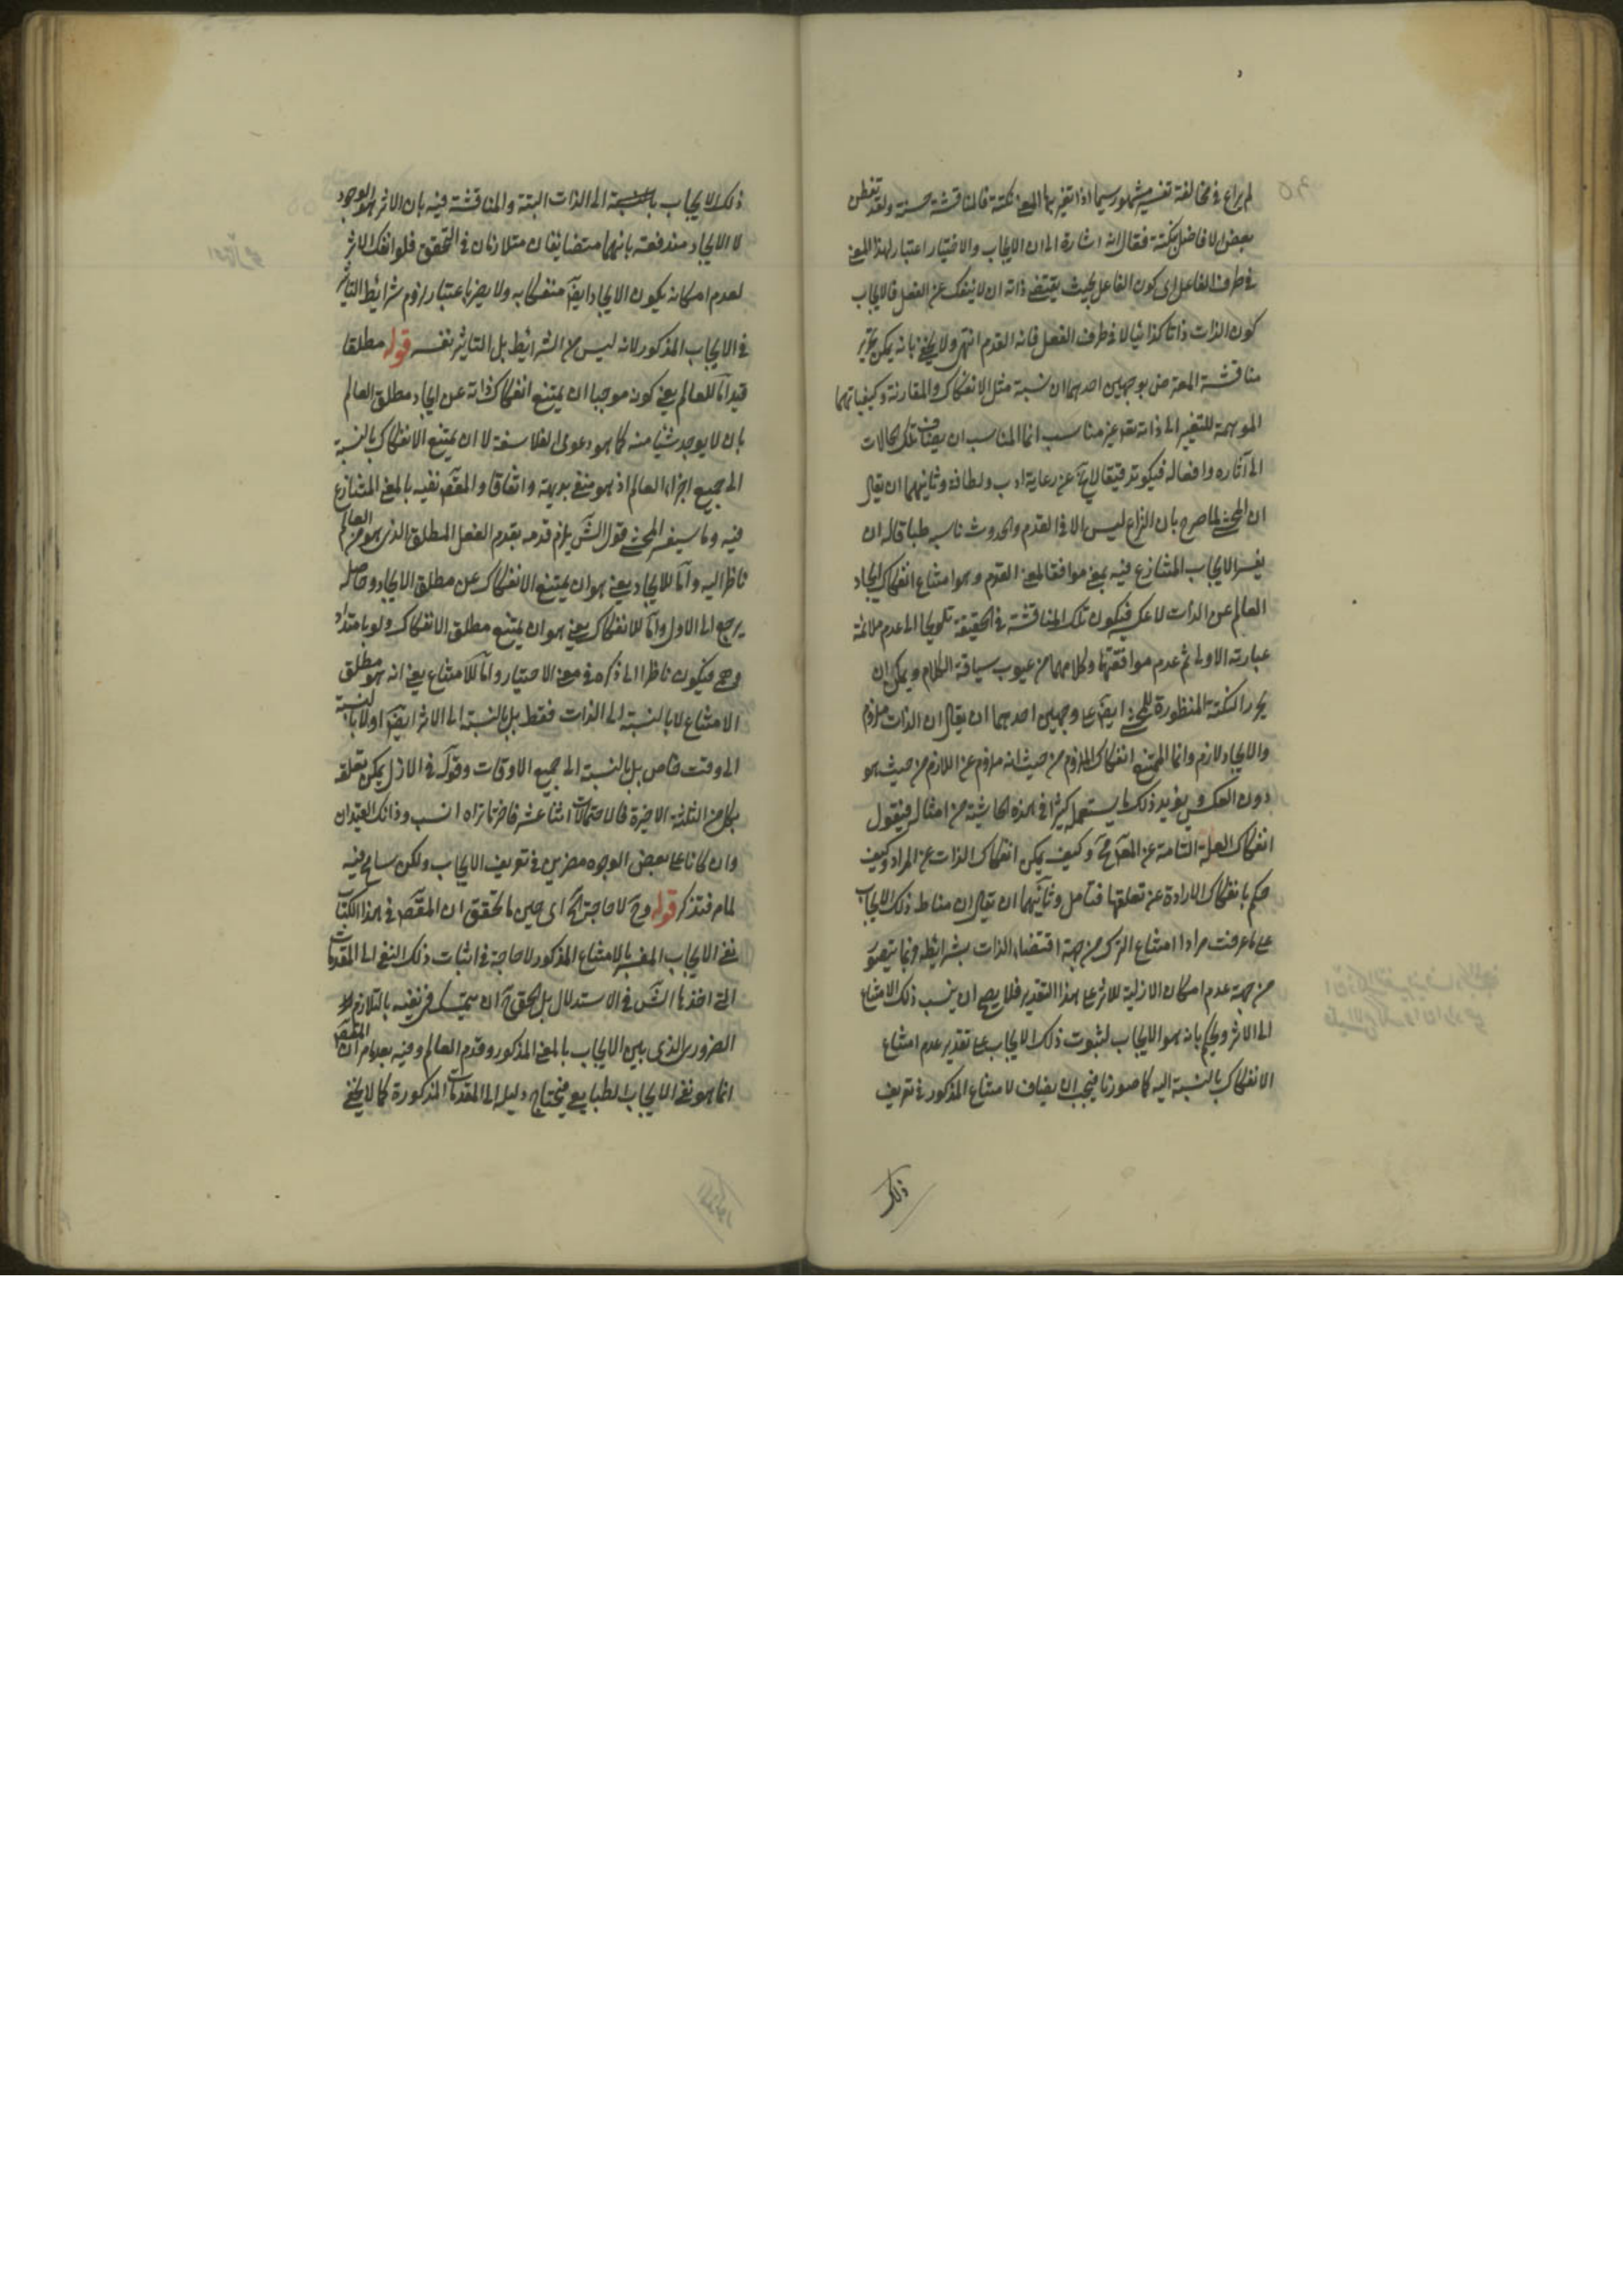 لم يراع في مخالفة تفسير مشهور سيما اذا تغير بها المعنى نكتة فالمناقشة حسنة ولقد تفطن
بعض الافاضل بنكتة فقال انه اشارة الى ان الايجاب والاختيار اعتبار لهذا المعنى
في طرف الفاعل اى كون الفاعل بحيث يقتضى ذاته ان لا ينفك عن الفعل فالايجاب
كون الذات ذاتا كذائيا لا في طرف الفعل فانه القدم انتهى ولا يخفى بانه يمكن تحرير
مناقشة المعترض بوجهين احدهما ان نسبة مثل الانفكاك والمقارنة وكيفياتهما
الموهمة للتغير الى ذاته تعالى غير مناسب انما المناسب ان يضاف تلك الحالات
الى آثاره وافعاله فيكون تدقيقا لا يخ عن رعاية ادب ولطافة وثانيهما ان يقال
ان المحشى لما صرح بان النزاع ليس الا في القدم والحدوث ناسبه طباقا له ان
يفسر الايجاب المتنازع فيه بمعنى موافق لمعنى القدم وهو امتناع انفكاك ايجاد
العالم عن الذات لا عكسه فيكون تلك المناقشة في الحقيقة تلويحا الى عدم ملائمة
عبارته الاولى ثم عدم موافقتها وكلامهما من عيوب سياقة الكلام ويمكن ان
يحرر النكتة المنظورة للمحشى ايضا على وجهين احدهما ان يقال ان الذات ملزوم
والايجاد لازم وانما الممتنع انفكاك الملزوم من حيث انه ملزوم عن اللازم من حيث هو
دون العكس ويؤيد ذلك ما يستعمل كثيرا في هذه الحاشية من امثاله فيقول
انفكاك العلة التامة عن المعلول مح وكيف يمكن انفكاك الذات عن المراد وكيف
حكم بانفكاك الارادة عن تعلقها فتأمل وثانيهما ان يقال ان مناط ذلك الايجاب
على ما عرفت مرارا امتناع الترك من جهة اقتضاء الذات بشرائطه وانما يتصور
من جهة عدم امكان الازلية للاثر على هذا التقدير فلا يصح ان ينسب ذلك الامتناع
الى الاثر ويحكم بانه هو الايجاب لثبوت ذلك الايجاب على تقدير عدم امتناع
الانفكاك بالنسبة اليه كما صورنا فيجب ان يضاف الامتناع المذكور في تعريف
ذلك
ذلك الايجاب بالنسبة الى الذات البتة والمناقشة فيه بان الاثر هو الوجود
لا الايجاد مندفعة بانهما متضايفان متلازمان في التحقق فلو انفك الاثر
لعدم امكانه يكون الايجاد ايضا منفكا به ولا يضرنا اعتبار لزوم شرائط التأثير
في الايجاب المذكور لانه ليس من الشرائط بل التاثير نفسه قوله مطلقا
قيد اما للعالم يعنى كونه موجبا ان يمتنع انفكاك ذاته عن ايجاد مطلق العالم
بان لا يوجد شيئا منه كما هو دعوى الفلاسفة لا ان يمتنع الانفكاك بالنسبة
الى جميع اجزاء العالم اذ هو منفى بديهة واتفاقا والمقصود نفيه بالمعنى المتنازع
فيه وما سيفسر المحشى قول الش يلزم قدمه بقدم الفعل المطلق الذى هو من العالم
ناظر اليه واما للايجاد يعنى هو ان يمتنع الانفكاك عن مطلق الايجاد وحاصله
يرجع الى الاول واما للانفكاك يعنى هو ان يمتنع مطلق الانفكاك ولو بامتداد
وهمى فيكون ناظرا الى ذكره في معنى الاختيار واما للامتناع يعنى انه هو مطلق
الامتناع لا بالنسبة الى الذات فقط بل بالنسبة الى الاثر ايضا او لا بالنسبة
الى وقت خاص بل بالنسبة الى جميع الاوقات وقوله في الازل يمكن تعلقه
بكل من الثلثة الاخيرة فالاحتمالات اثنا عشر فاختر ما تراه انسب وذانك القيدان
وان كانا على بعض الوجوه مضرين في تعريف الايجاب ولكن سامح فيه
لما مر فتذكر قوله وح لا حاجة الخ اى حين ما تحقق ان المقصود في هذا الكتاب
نفى الايجاب المفسر بالامتناع المذكور لا حاجة في اثبات ذلك النفى الى المقدمات
التى اخذها الش في الاستدلال بل الحق ح ان يتمسك في نفيه بالتلازم
الضرورى الذى بين الايجاب بالمعنى المذكور وقدم العالم وفيه بعد ما مر ان المقصود
انما هو نفى الايجاب الطبايعى فيحتاج دليله الى المقدمات المذكورة كما لا يخفى